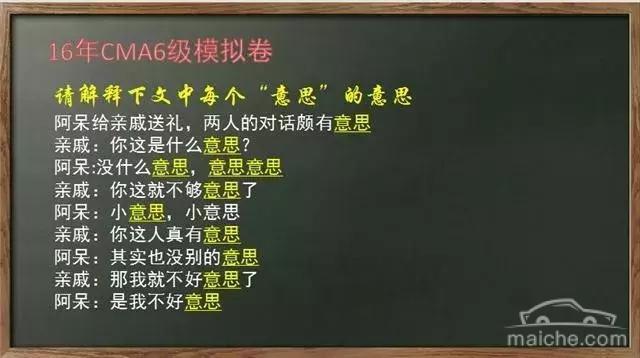 16年CMA6级模拟卷
请解释下文中每个“意思”的意思
阿呆给亲戚送礼，两人的对话颇有意思
亲戚：你这是什么意思?
阿呆:没什么意思，意思意思
亲戚：你这就不够意思了
阿呆：小意思，小意思
亲戚：你这人真有意思
阿呆：其实也没别的意思
亲戚：那我就不好意思了
阿呆：是我不好意思
maiche.com